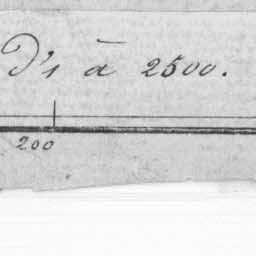 D's à 2500.
200